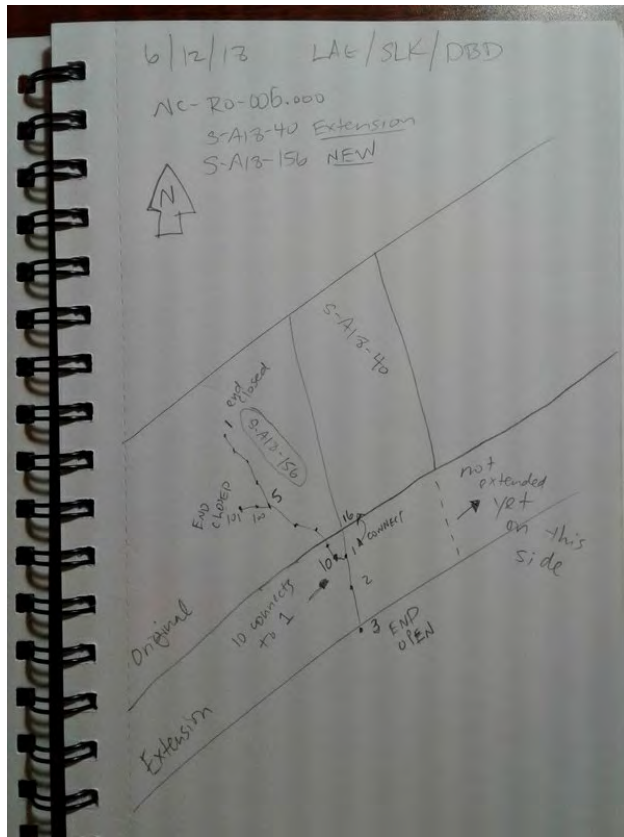 6/12/18 LAE/SLK/DBD
NC-RO-006.000
S-A18-40 Extension
S-A18-156 NEW
N
S-A18-40
end closed
S-A18-156
5
END CLOSED
101 100
16
CONNECT
1
10
2
10 connects to 1
3 END OPEN
not extended yet on this side
Original
Extension